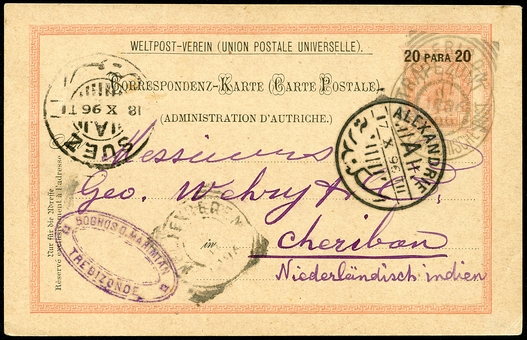 WELTPOST-VEREIN (UNION POSTALE UNIVERSELLE).
20 PARA 20
CORRESPONDENZ-KARTE (CARTE POSTALE)
(ADMINISTRATION D'AUTRICHE.)
SUEZ
18 X 96 TI
ALEXANDRIE
17 X 96
Messieurs
Geo. Wehry &
Cheribon
Niederländisch indien
Nur für die Adresse
Réservé exclusivement à l'adresse
BOGHOS O. MARIMIAN
TREBIZONDE